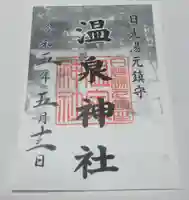 日光湯元鎮守
温泉神社
令和五年五月十三日